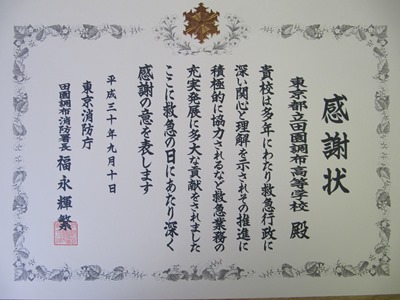 感謝状
東京都立田園調布高等学校 殿
貴校は多年にわたり救急行政に
深い関心と理解を示されその推進に
積極的に協力されるなど救急業務の
充実発展に多大な貢献をされました
ここに救急の日にあたり深く
感謝の意を表します
平成三十年九月十日
東京消防庁
田園調布消防署長 福永輝繁